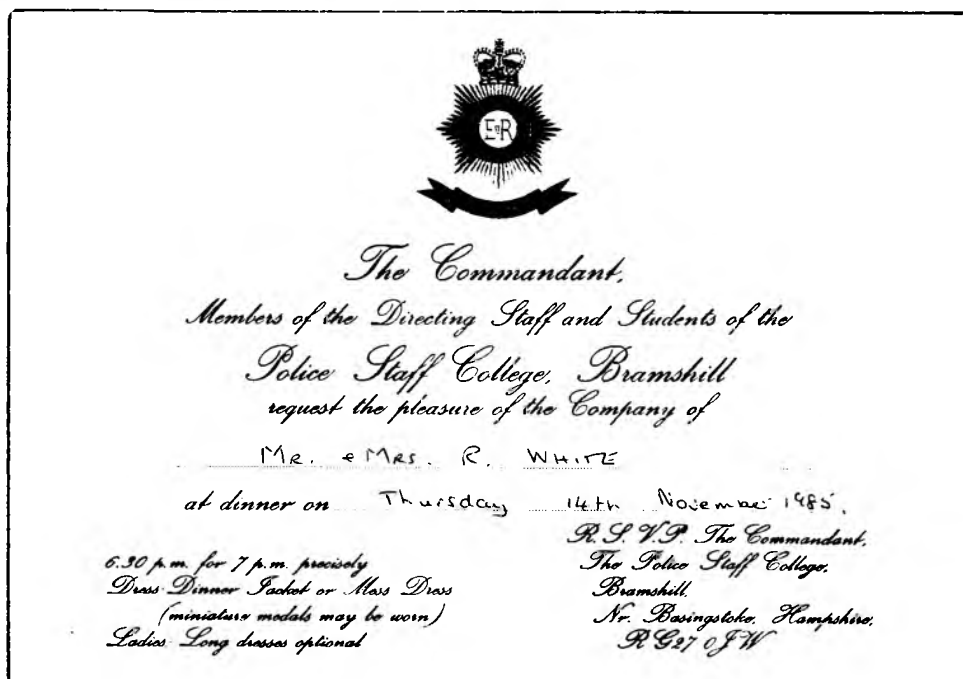 E II R
The Commandant,
Members of the Directing Staff and Students of the
Police Staff College, Bramshill
request the pleasure of the Company of
MR. & MRS. R. WHITE
at dinner on Thursday 14th November 1985.
6.30 p.m. for 7 p.m. precisely
Dress: Dinner Jacket or Mess Dress
(miniature medals may be worn)
Ladies: Long dresses optional
R.S.V.P. The Commandant,
The Police Staff College,
Bramshill,
Nr. Basingstoke, Hampshire,
RG27 0JW